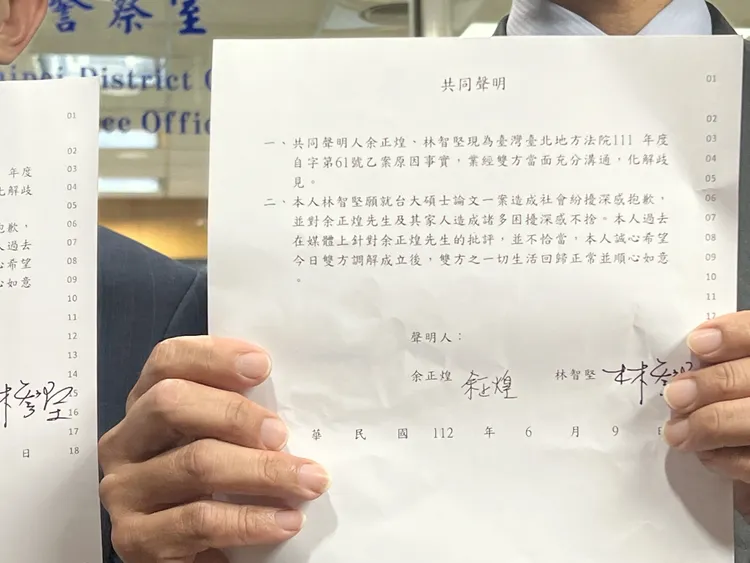 警察室
Taipei District
ce Offi
共同聲明
01
02
一、共同聲明人余正煌、林智堅現為臺灣臺北地方法院111 年度 03
自字第61號乙案原因事實，業經雙方當面充分溝通，化解歧 04
見。 05
二、本人林智堅願就台大碩士論文一案造成社會紛擾深感抱歉， 06
並對余正煌先生及其家人造成諸多困擾深感不捨。本人過去 07
在媒體上針對余正煌先生的批評，並不恰當，本人誠心希望 08
今日雙方調解成立後，雙方之一切生活回歸正常並順心如意 09
。 10
11
聲明人：
余正煌 余正煌 林智堅 林智堅
華 民 國 112 年 6 月 9 日
01
02
年度 03
化解歧 04
05
抱歉， 06
人過去 07
心希望 08
心如意 09
10
11
12
13
14
林智堅 15
16
17
日 18